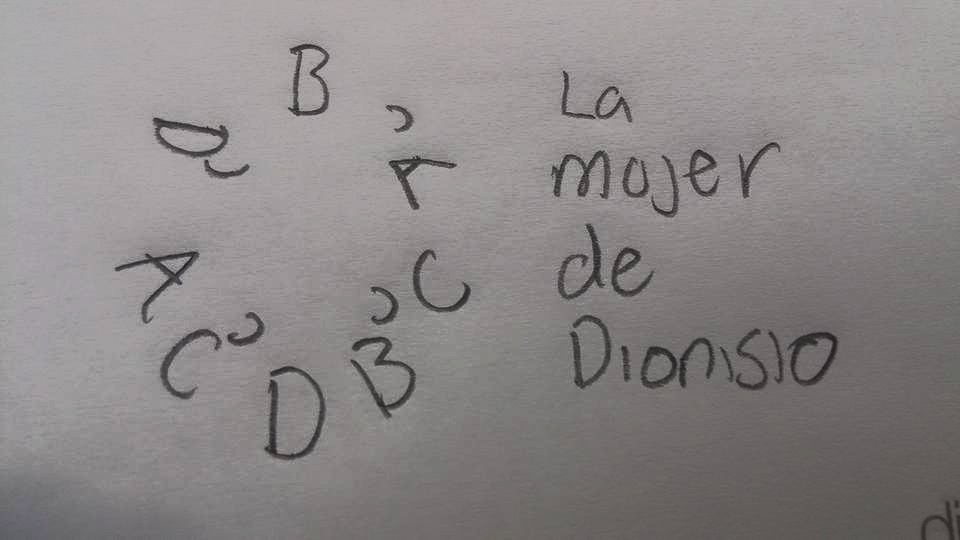 B
D, , A
A , C
C , D B
La
mojer
de
Dionisio
di